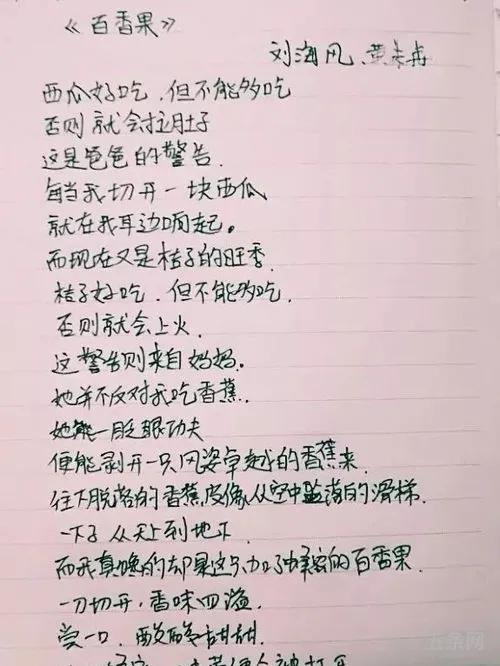 《百香果》
刘海风、黄未冉
西瓜好吃,但不能多吃
否则就会拉肚子
这是爸爸的警告.
每当我切开一块西瓜
就在我耳边响起。
而现在又是桔子的旺季.
桔子好吃,但不能多吃.
否则就会上火.
这警告则来自妈妈.
她并不反对我吃香蕉.
她一眨眼功夫
便能剥开一只风姿卓越的香蕉来.
往下脱落的香蕉皮像从空中坠落的滑梯.
一下子从天上到地下
而我真馋的却是这只加了蜂蜜的百香果.
一刀切开,香味四溢.
尝一口,酸酸甜甜.
五条网